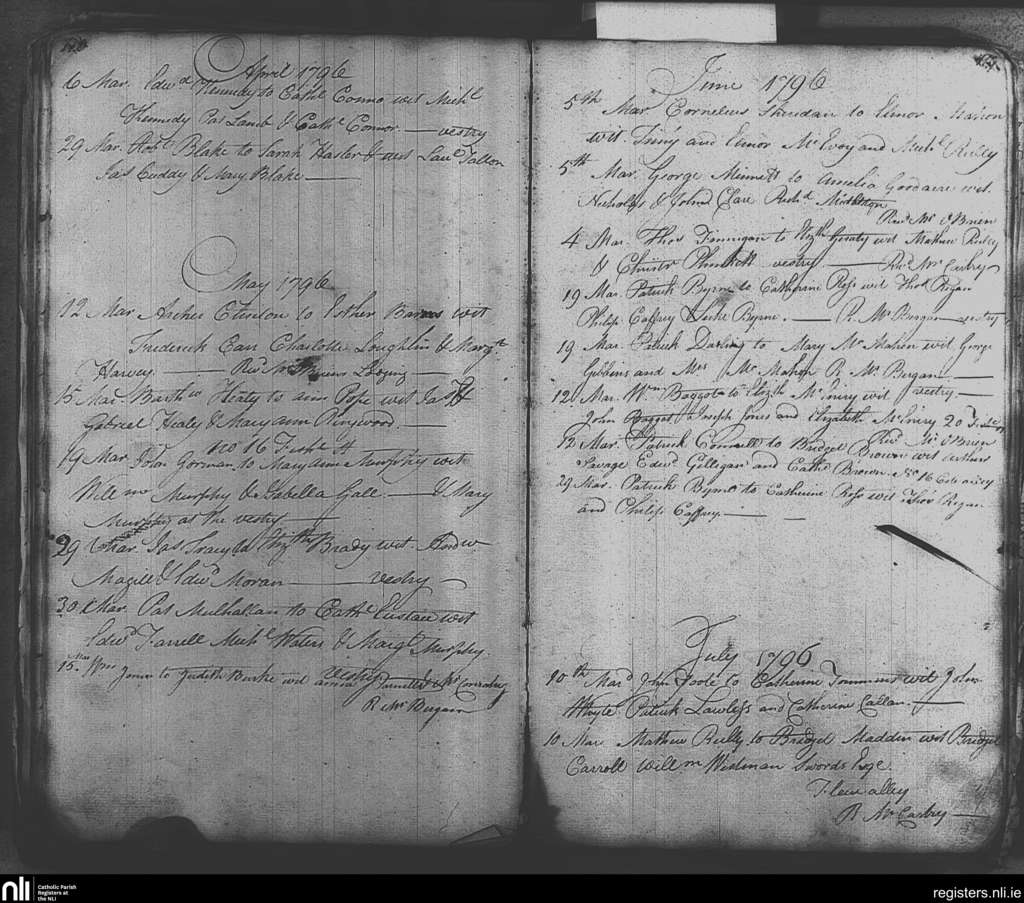 April 1796
6 Mar. Edwd Kennedy to Cathe Connor wit Michl
Kennedy Pat Lamb & Cathe Connor — vestry
29 Mar. Robt Blake to Sarah Harler & wit Laue Tallon
Jas Cuddy & Mary Blake —
May 1796
12 Mar Archer to Esther Barns wit
Frederick Earl Charlotte Loughlin & Margt
Harvey. — Revd Mr Briens Lodging —
15 Mar. Barthw Healy to ann Pope wit Jas
Gabriel Healy & Mary ann Ringwood. —
no 16 Fish
19 Mar. John Gorman to Mary anne Murphy wit
Willm Murphy & Isabella Gall. — & Mary
Murphy at the vestry —
29 Mar. Jas Tracy to Elizth Brady wit Andw
Magill & Edwd Moran — vestry —
30 Mar. Pat Mulhallan to Cathe Eustace wit
Edwd Farrell Michl Waters & Margt Murphy.
vestry
15 Mar Wm Jones to Judith Burke wit
R Mr Bergan
167
June 1796
5th Mar Cornelius Sheridan to Elinor
wit. and Elinor McEvoy and Michl Reilly
5th Mar. George to Amelia Goodacre wit.
Nicholas & John Clare Richd
Revd Mr O'Brien
4 Mar. Thos Finnigan to Elizth Geraty wit Mathew Reilly
& Christr Plunkett vestry — Revd Mr Carbry
19 Mar. Patrick Byrne to Catherine Ross wit Thos Regan
Philip Caffrey Byrne. — R. Mr Bergan — vestry
19 Mar. Patrick Darling to Mary McMahon wit. George
Gibbins and Mrs McMahon R Mr Bergan —
12 Mar. Wm Baggot to Elizth McEniry wit vestry —
John Baggot & Joseph Jones and Elizabeth McEniry 20
Revd Mr O'Brien
12 Mar. Patrick Connell to Bridget Brown wit Arthur
Savage Edwd Gilligan and Cathe Brown No 16
29 Mar. Patrick Byrne to Catherine Ross wit Thos Regan
and Philip Caffrey. —
July 1796
10th Mard John Toole to Catherine Tommins wit John
Whyte Patrick Lawless and Catherine Callan. —
10 Mar. Mathew Reilly to Bridget Madden wit Bridget
Carroll Willm Wiseman Swords
alley
R Mr Carbry —
nli
Catholic Parish
Registers at
the NLI
registers.nli.ie